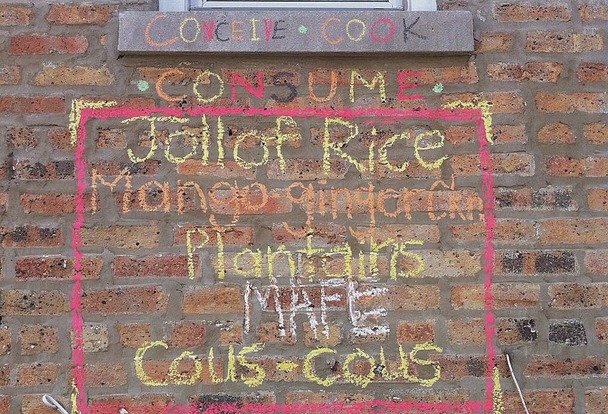 CONCEIVE • COOK
• CONSUME •
Jollof Rice
Mango gingerckn
Plantains
MAFE
Cous-cous